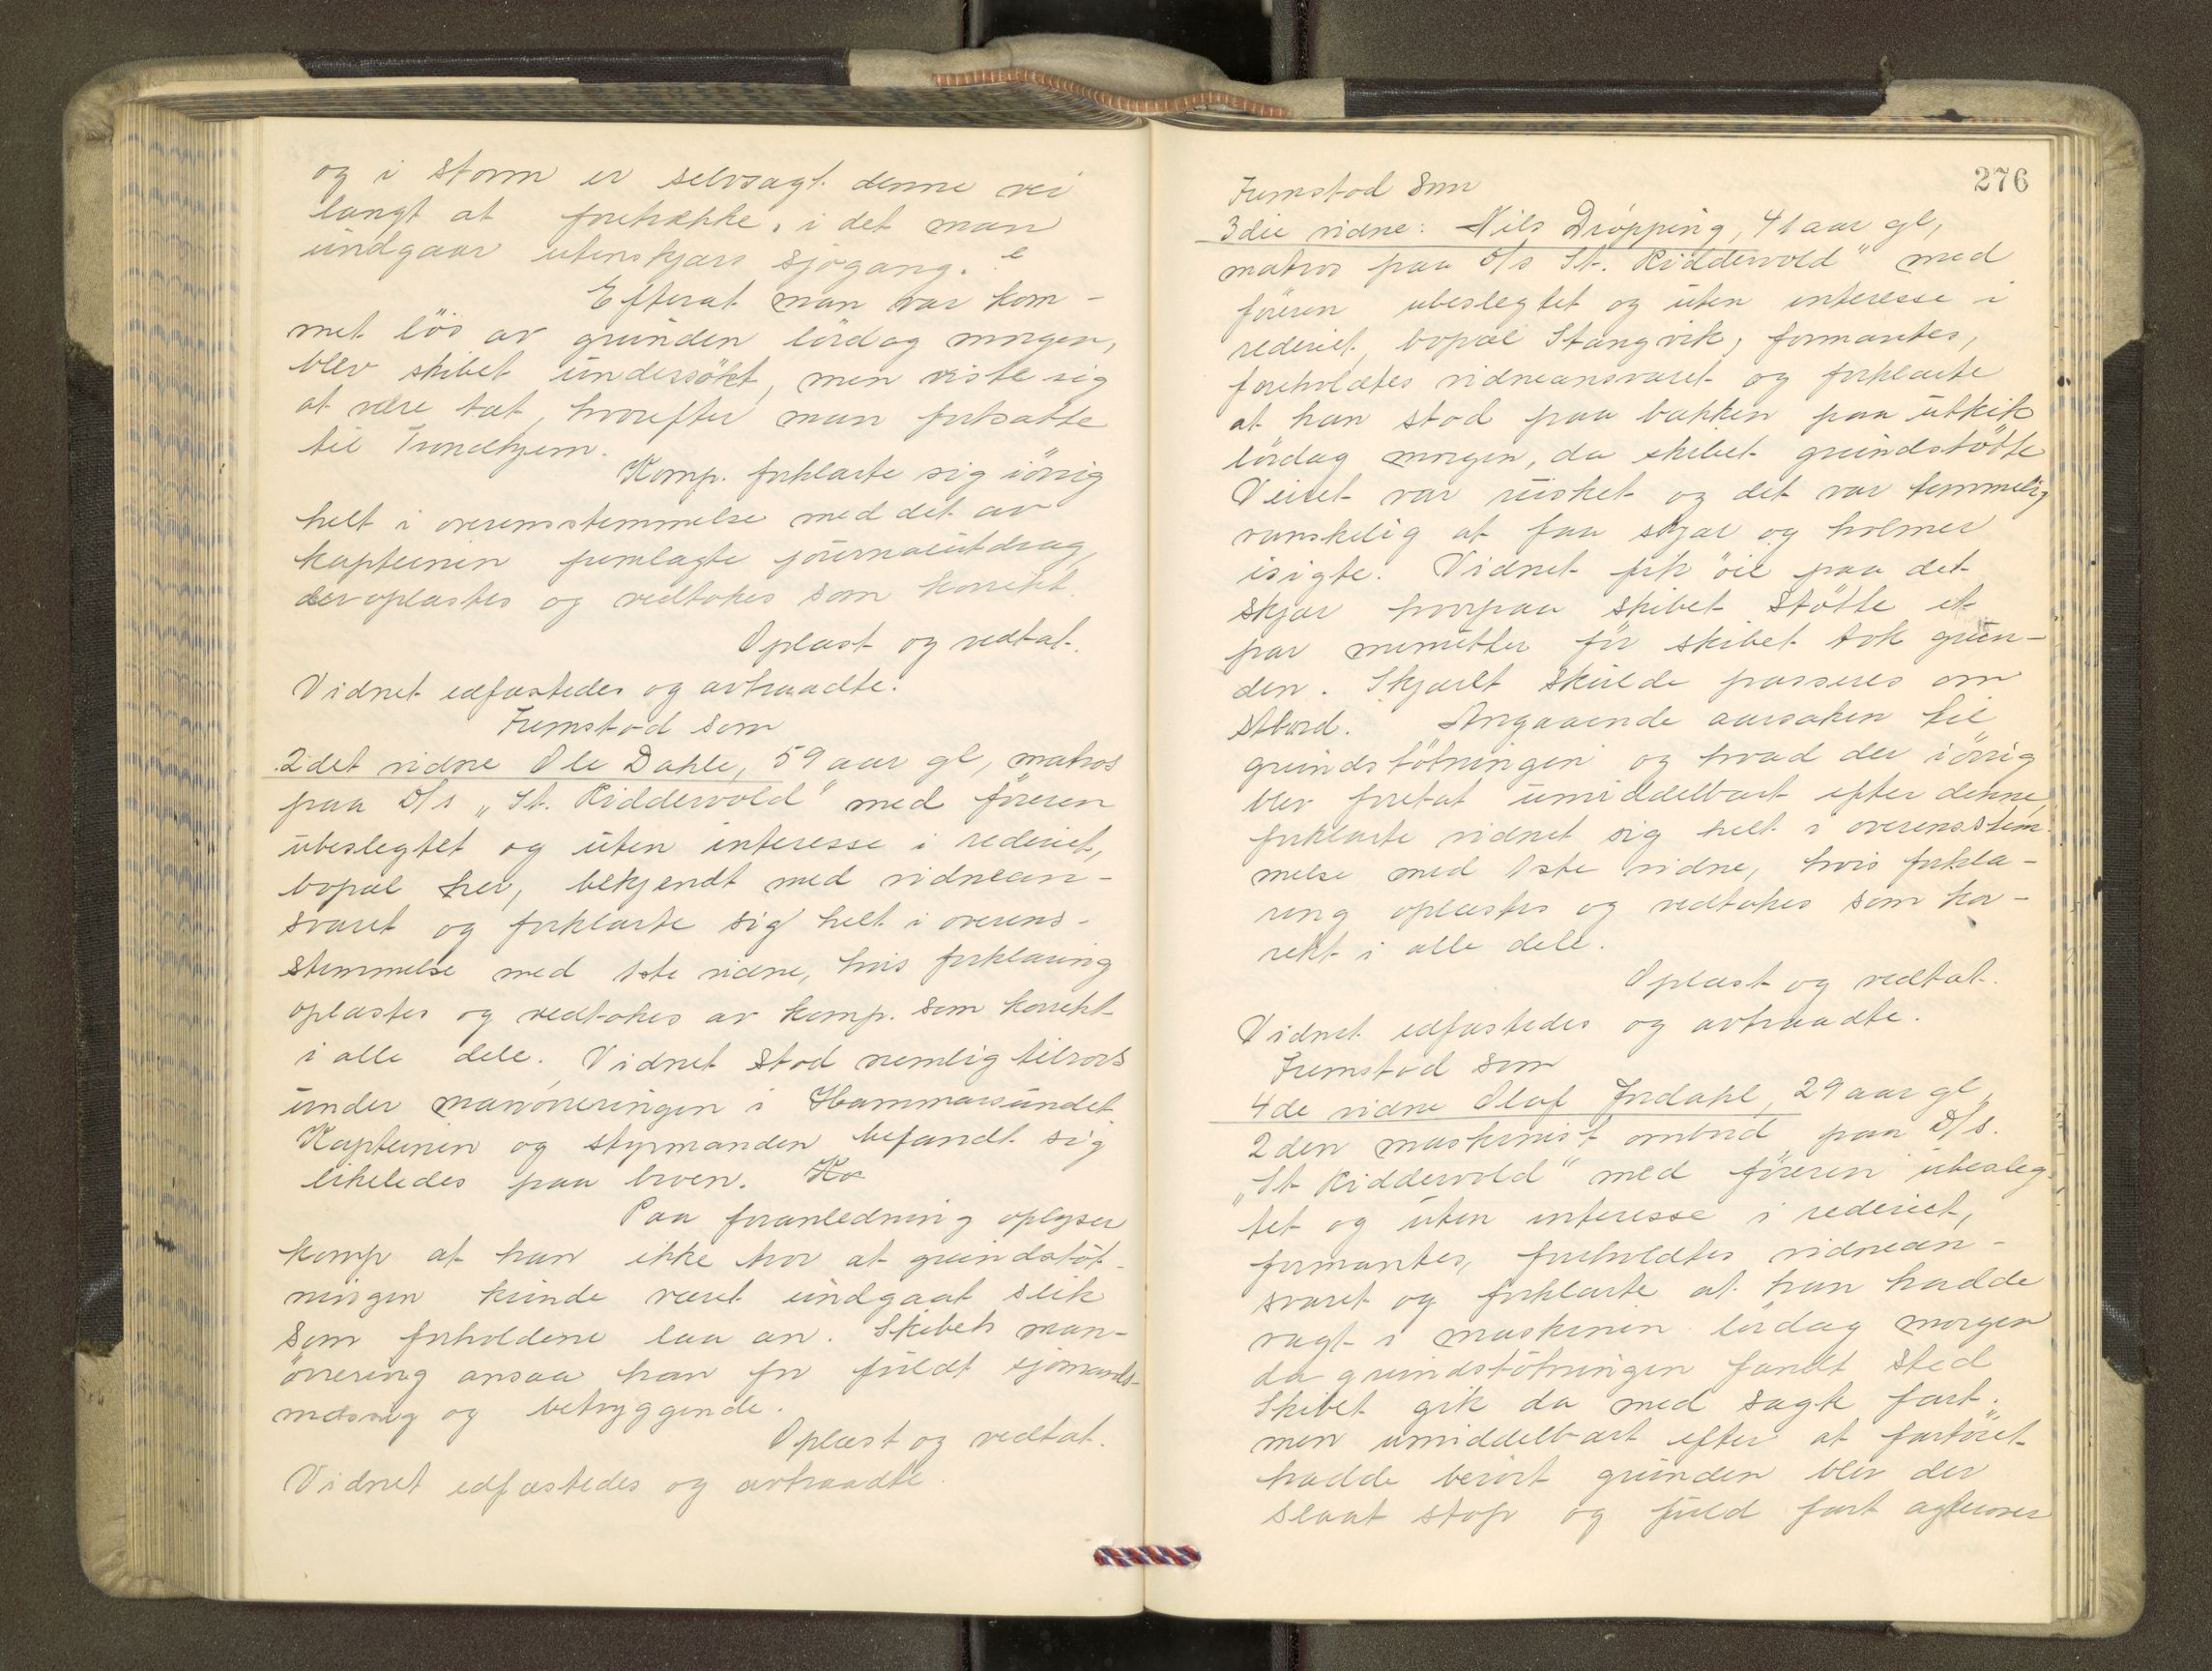 og i storm er selvsagt denne vei
langt at foretrække, i det man
undgaar utenskjærs sjøgang.
Efterat man var kom-
met løs av grunden lørdag morgen,
blev skibet undersøkt, men viste sig
at være tæt, hvorefter man fortsatte
til Trondhjem.
Komp. forklarte sig iøvrig
helt i overensstemmelse med det av
kapteinen fremlagte journalutdrag,
der oplæstes og vedtokes som korrekt.
Oplæst og vedtat.
Vidnet edfæstedes og avtraadte.
Fremstod som
2det vidne Ole Dahle, 59 aar gl, matros
paa D/s „St. Riddervold" med føreren
ubeslegtet og uten interesse i rederiet,
bopæl her, bekjendt med vidnean-
svaret og forklarte sig helt i overens-
stemmelse med 1ste vidne, hvis forklaring
oplæstes og vedtokes av komp. som korrekt
i alle dele. Vidnet stod nemlig tilrors
under manøvreringen i Hammarsundet
Kapteinen og styrmanden befandt sig
likeledes paa broen. Ko
Paa foranledning oplyser
komp at han ikke tror at grundstøt-
ningen kunde været undgaat slik
som forholdene laa an. Skibets man-
øvrering ansaa han for fuldt sjømands-
mæssig og betryggende.
Oplæst og vedtat.
Vidnet edfæstedes og avtraadte
276
Fremstod som
3die vidne: Nils Drøpping, 41 aar gl,
matros paa D/s St. Riddervold" med
føreren ubeslegtet og uten interesse i
rederiet, bopæl Stangvik, formantes,
foreholdtes vidneansvaret og forklarte
at han stod paa bakken paa utkik
lørdag morgen, da skibet grundstøtte
Veiret var rusket og det var temmelig
vanskelig at faa skjær og holmer
isigte. Vidnet fik øie paa det
skjær hvorpaa skibet støtte et
par minutter før skibet tok grun-
den. Skjæret skulde passeres om
stbord. Angaaende aarsaken til
grundstøtningen og hvad der iøvrig
blev foretat umiddelbart efter denne,
forklarte vidnet sig helt i overensstem-
melse med 1ste vidne, hvis forkla-
ring oplæstes og vedtokes som kor-
rekt i alle dele.
Oplæst og vedtat.
Vidnet edfæstedes og avtraadte.
Fremstod som
4de vidne Olaf Jordahl, 29 aar gl,
2den maskinist ombord paa D/s.
„St Riddervold" med føreren ubesleg-
tet og uten interesse i rederiet,
formantes, foreholdtes vidnean-
svaret og forklarte at han hadde
vagt i maskinen lørdag morgen
da grundstøtningen fandt sted
Skibet gik da med sagte fart.
men umiddelbart efter at fartøiet
hadde berørt grunden blev der
slaat stop og fuld fart agterover